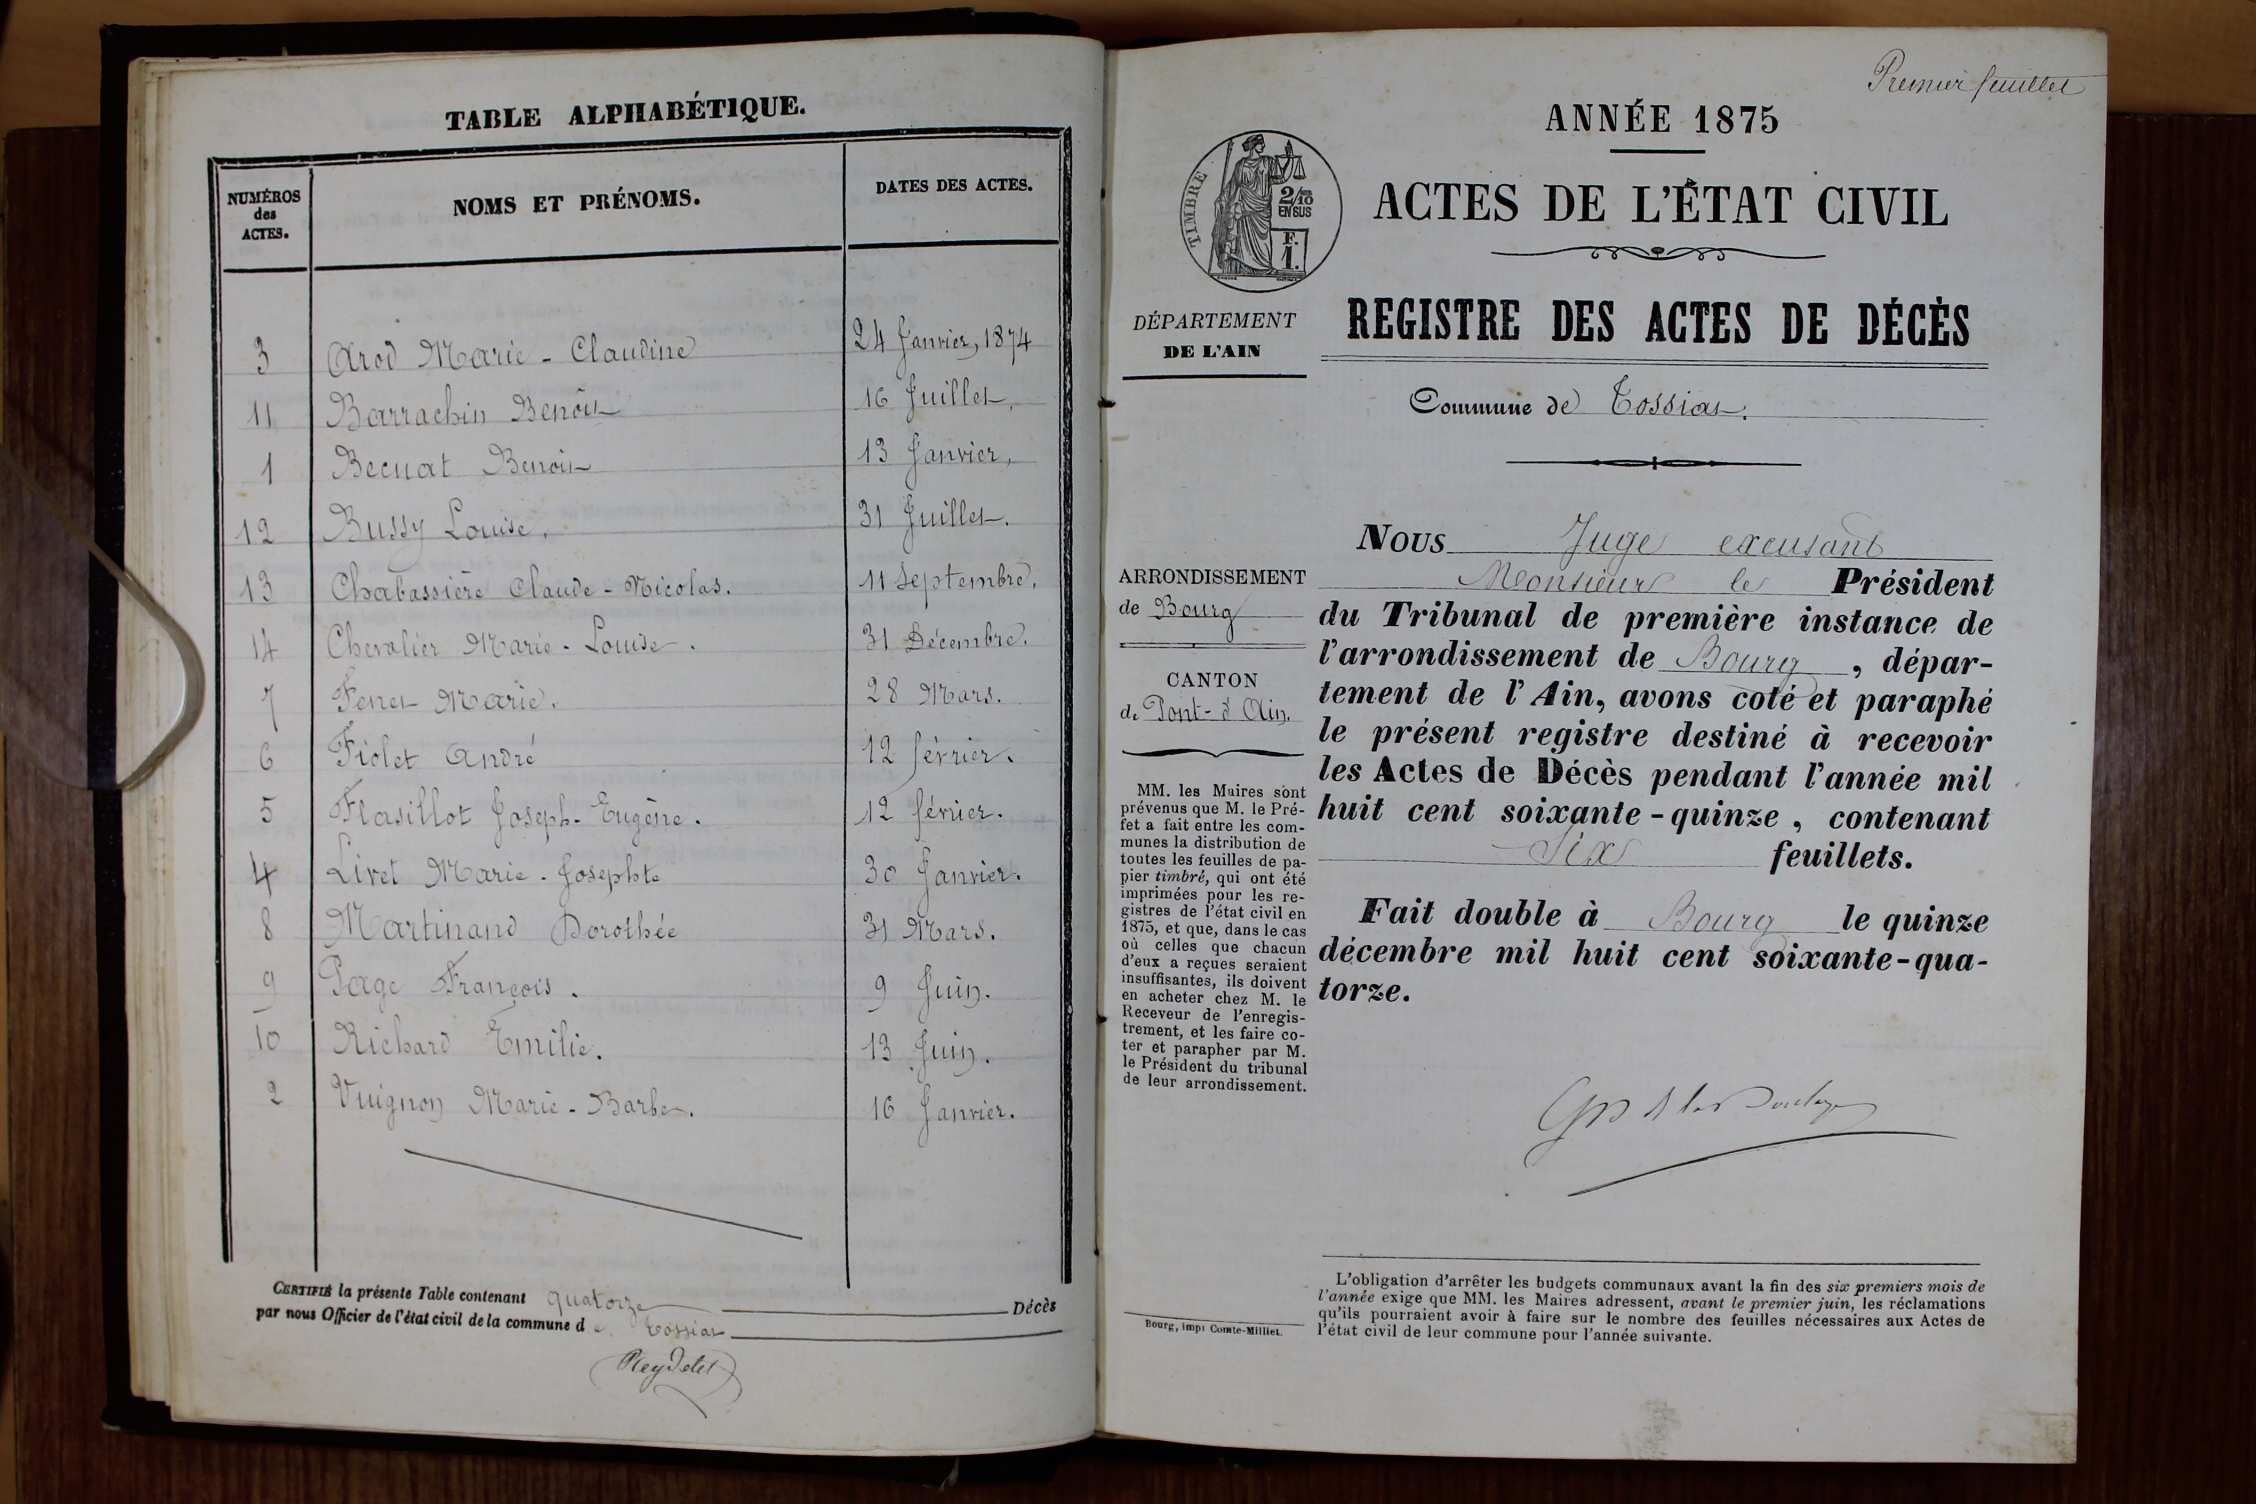 TABLE ALPHABÉTIQUE.
NUMÉROS des ACTES. NOMS ET PRÉNOMS. DATES DES ACTES.
3 Arod Marie - Claudine 24 Janvier, 1874
11 Barrachin Benoît 16 Juillet,
1 Becuat Benoit 13 Janvier,
12 Bussy Louise. 31 Juillet.
13 Chabassière Claude - Nicolas. 11 Septembre.
14 Chevalier Marie - Louise. 31 Décembre.
7 Feret Marie. 28 Mars.
6 Fiolet André 12 février.
5 Flasillot Joseph - Eugène. 12 février.
4 Livet Marie - Josephte 30 Janvier.
8 Martinand Dorothée 31 Mars.
9 Page François. 9 Juin.
10 Richard Emilie. 13 Juin.
2 Vuignon Marie - Barbe. 16 Janvier.
CERTIFIÉ la présente Table contenant quatorze Décès
par nous Officier de l'état civil de la commune de Tossiat
Reydelet
Premier feuillet
ANNÉE 1875
ACTES DE L'ÉTAT CIVIL
TIMBRE
2/10
EN SUS
F.
1.
REGISTRE DES ACTES DE DÉCÈS
DÉPARTEMENT
DE L'AIN
Commune de Tossiat.
ARRONDISSEMENT
de Bourg
CANTON
de Pont-d'Ain.
MM. les Maires sont
prévenus que M. le Pré-
fet a fait entre les com-
munes la distribution de
toutes les feuilles de pa-
pier timbré, qui ont été
imprimées pour les re-
gistres de l'état civil en
1875, et que, dans le cas
où celles que chacun
d'eux a reçues seraient
insuffisantes, ils doivent
en acheter chez M. le
Receveur de l'enregis-
trement, et les faire co-
ter et parapher par M.
le Président du tribunal
de leur arrondissement.
Nous Juge excusant
Monsieur le Président
du Tribunal de première instance de
l'arrondissement de Bourg, dépar-
tement de l'Ain, avons coté et paraphé
le présent registre destiné à recevoir
les Actes de Décès pendant l'année mil
huit cent soixante-quinze, contenant
Six feuillets.
Fait double à Bourg le quinze
décembre mil huit cent soixante-qua-
torze.
L'obligation d'arrêter les budgets communaux avant la fin des six premiers mois de
l'année exige que MM. les Maires adressent, avant le premier juin, les réclamations
qu'ils pourraient avoir à faire sur le nombre des feuilles nécessaires aux Actes de
l'état civil de leur commune pour l'année suivante.
Bourg, imp. Comte-Milliet.